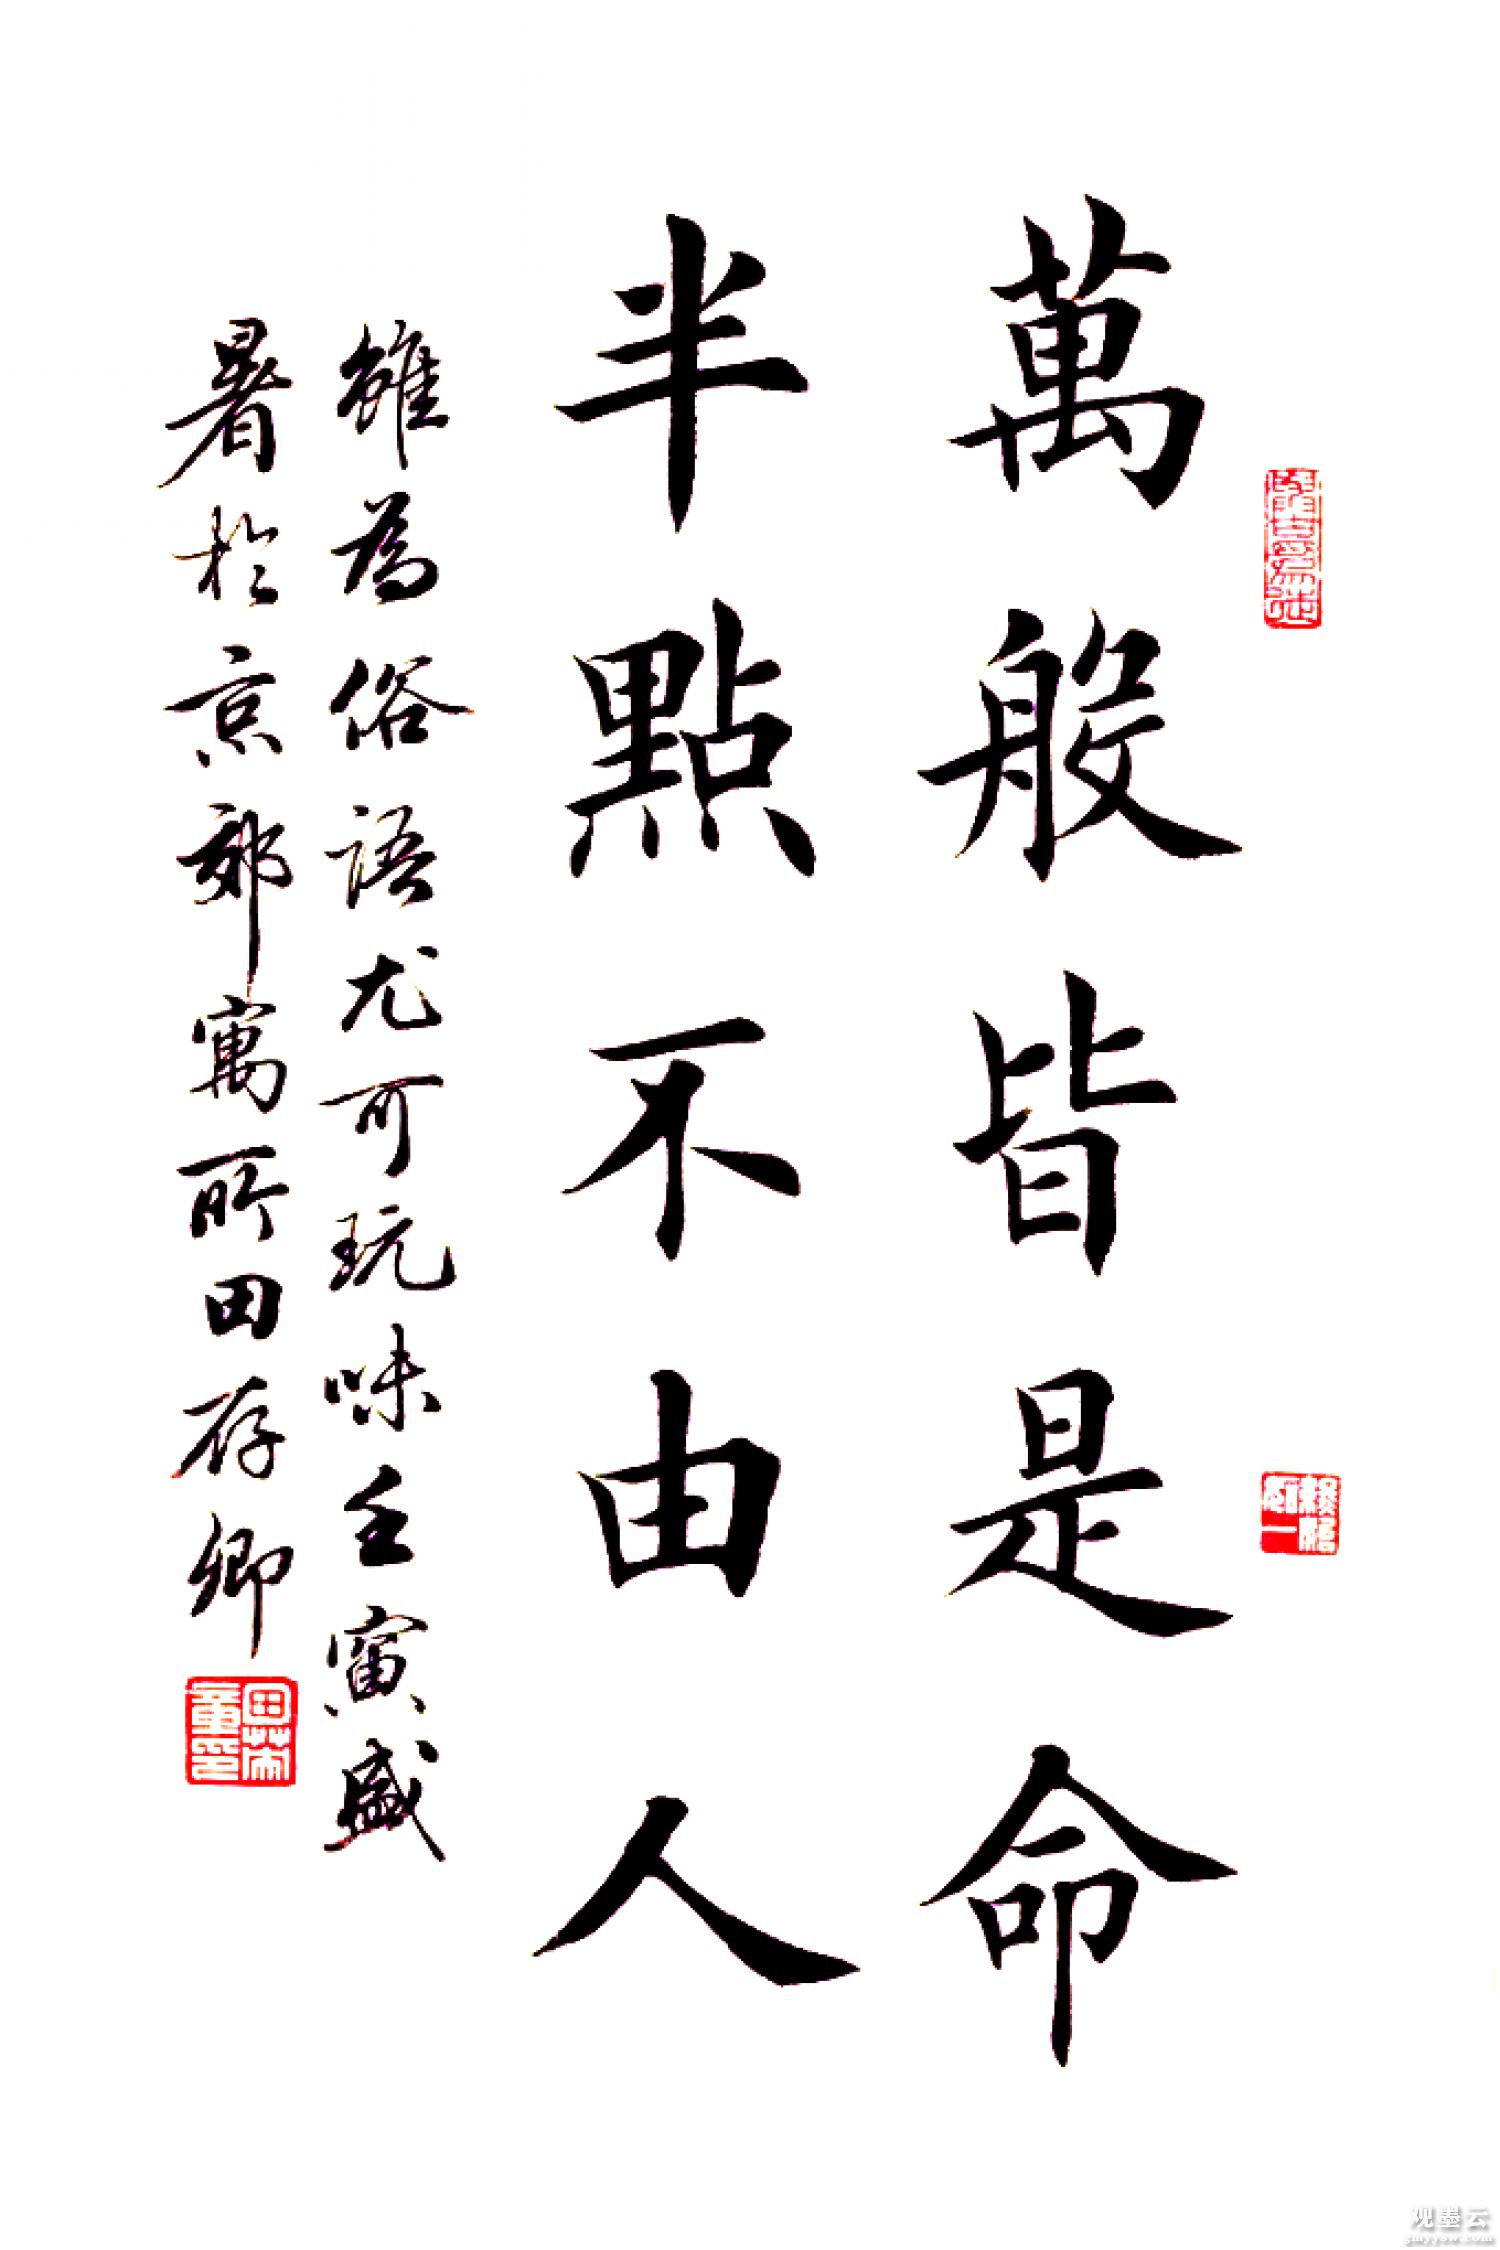 萬般皆是命
半點不由人
雖為俗語尤可玩味壬寅盛
暑於京郊寓所田存卿
观墨云
gmyysw.com